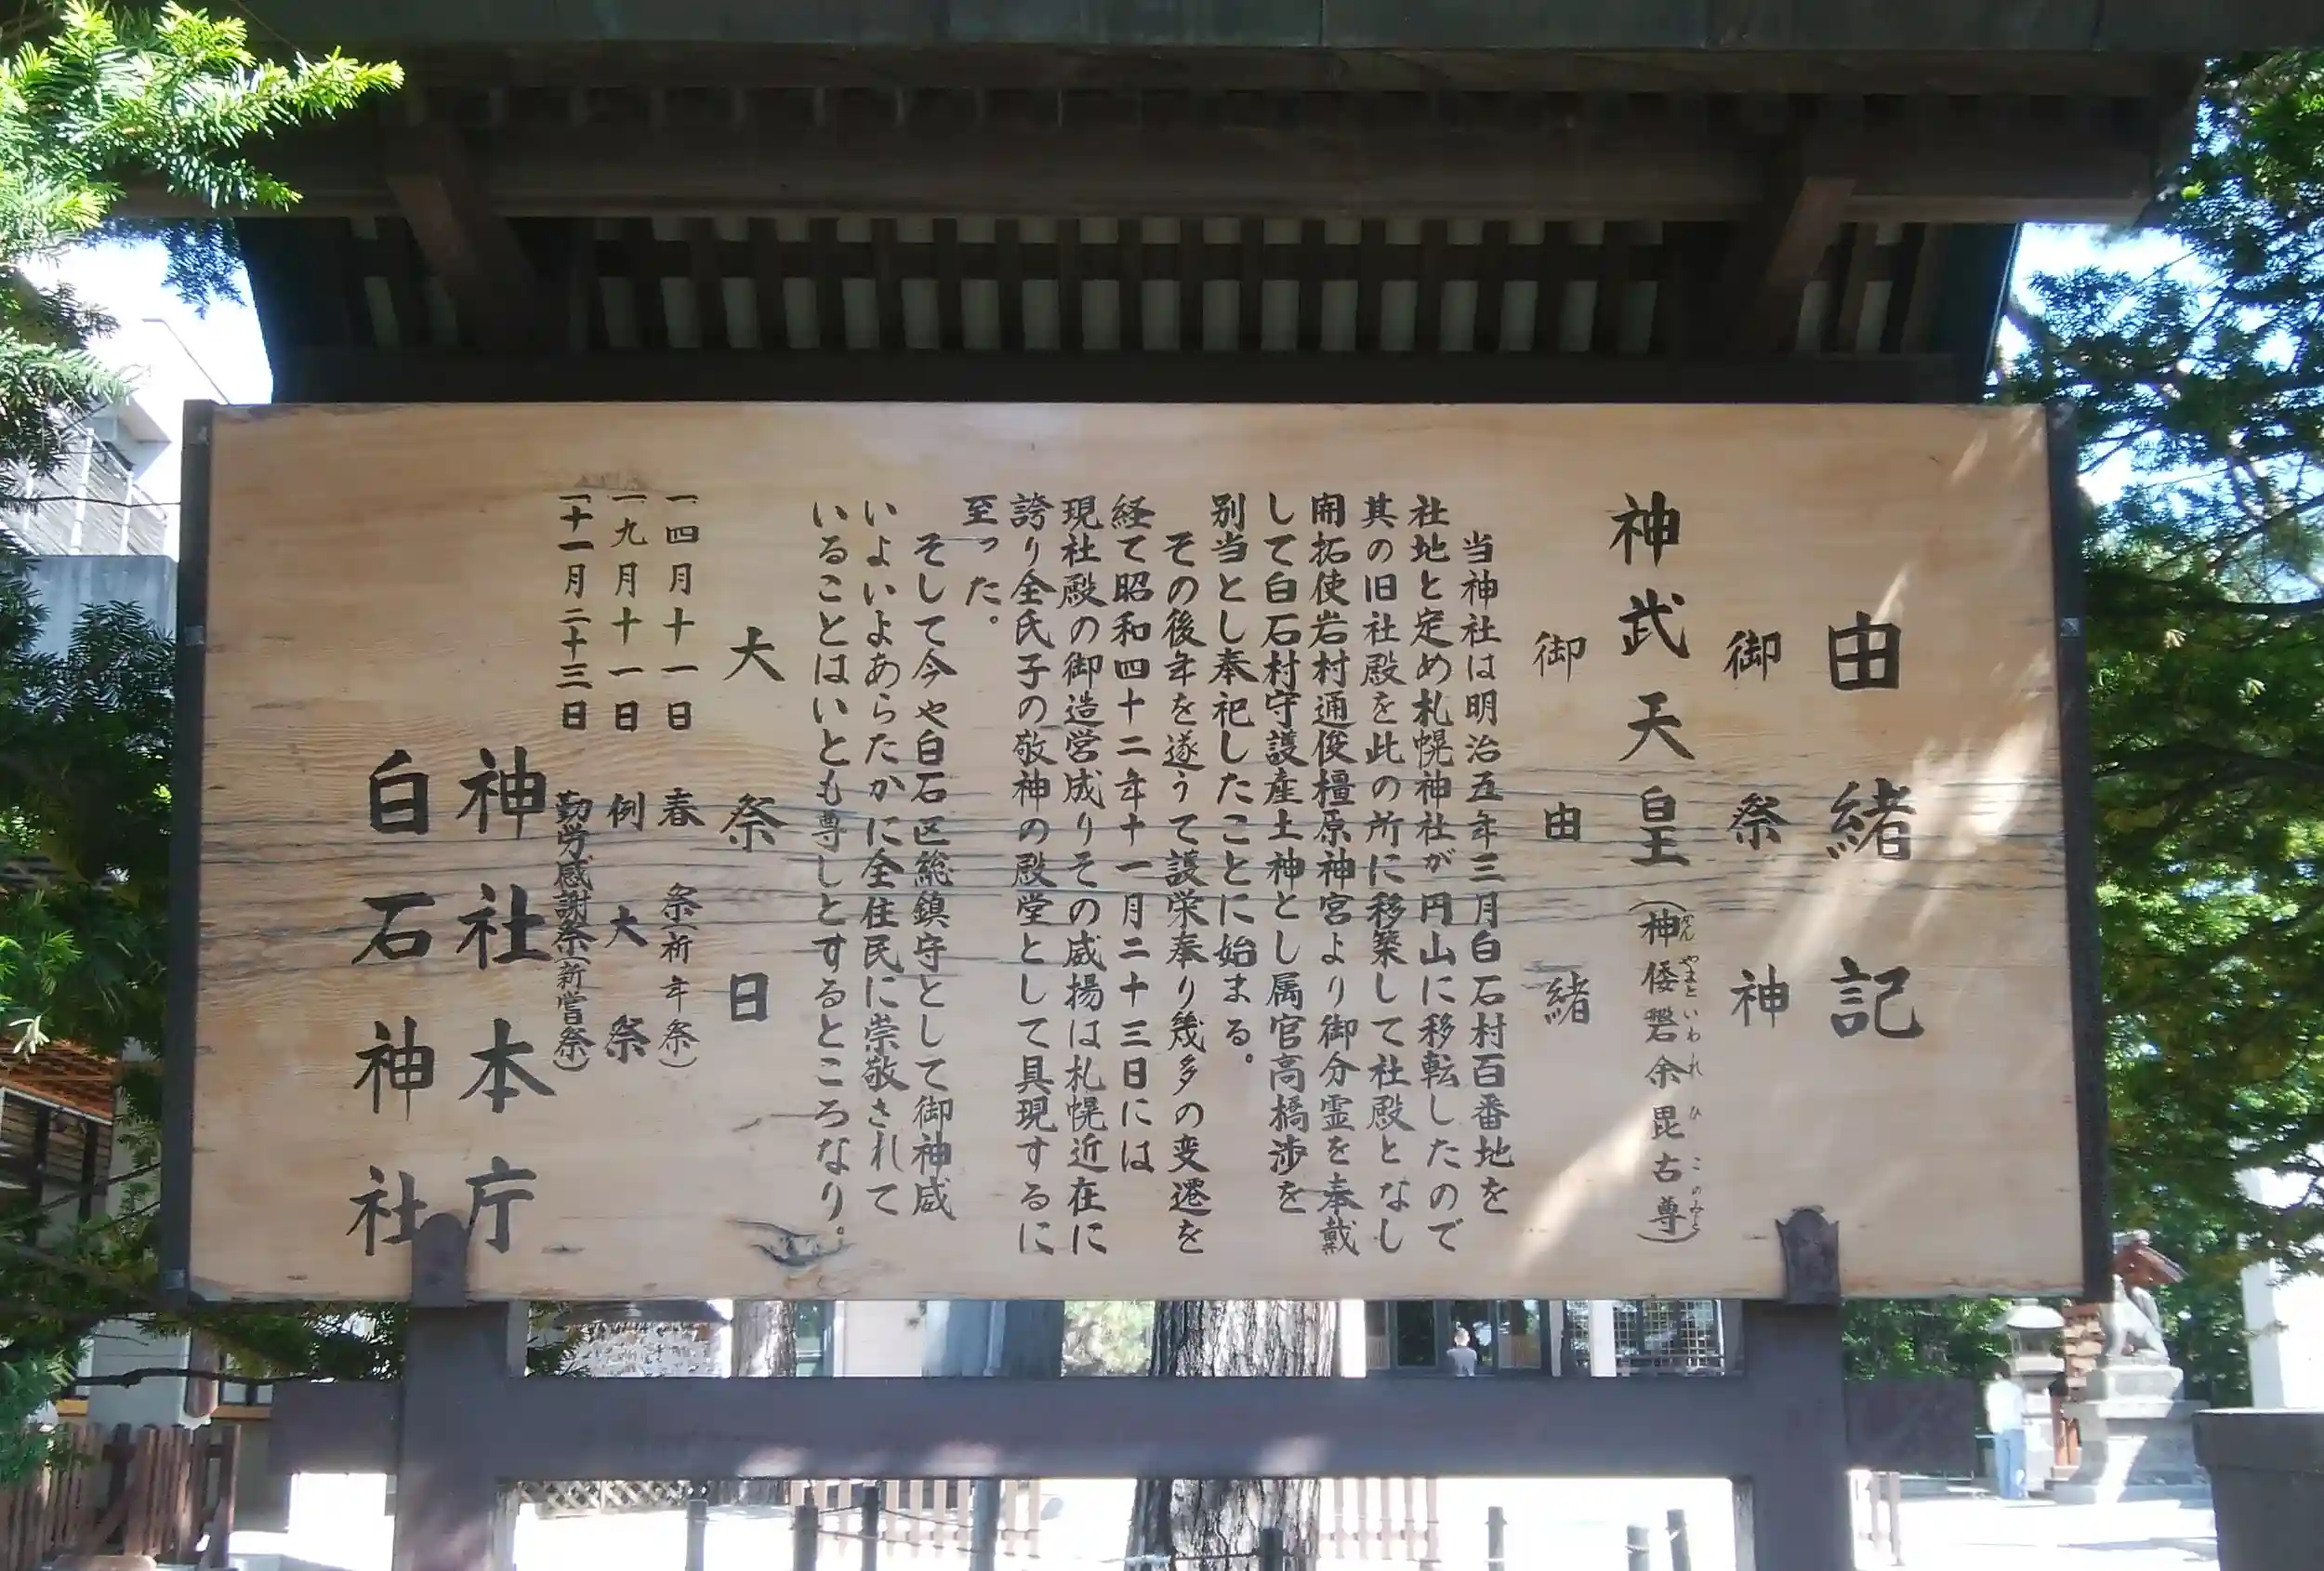 由緒記
御祭神
神武天皇(神倭磐余毘古尊)
かんやまといわれひこのみこと
御由緒
当神社は明治五年三月白石村百番地を
社地と定め札幌神社が円山に移転したので
其の旧社殿を此の所に移築して社殿となし
開拓使岩村通俊橿原神宮より御分霊を奉戴
して白石村守護産土神とし属官高橋渉を
別当とし奉祀したことに始まる。
その後年を遂うて護栄奉り幾多の変遷を
経て昭和四十二年十一月二十三日には
現社殿の御造営成りその威揚は札幌近在に
誇り全氏子の敬神の殿堂として具現するに
至った。
そして今や白石区総鎮守として御神威
いよいよあらたかに全住民に崇敬されて
いることはいとも尊しとするところなり。
大祭日
一四月十一日 春祭(祈年祭)
一九月十一日 例大祭
一十一月二十三日 勤労感謝祭(新嘗祭)
神社本庁
白石神社